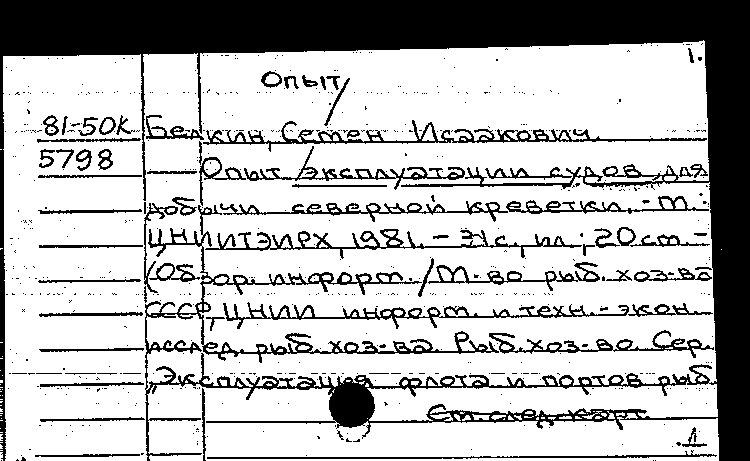 1.
Опыт/
81-50К Белкин, Семен Исаакович.
5798 Опыт /эксплуатации судов для
добычи северной креветки. - М.:
ЦНИИТЭИРХ, 1981. - 31 с., ил.; 20 см. -
(Обзор. информ. / М-во рыб. хоз-ва
СССР, ЦНИИ информ. и техн.-экон.
исслед. рыб. хоз-ва. Рыб. хоз-во. Сер.
"Эксплуатация флота и портов рыб.
См. след. карт.